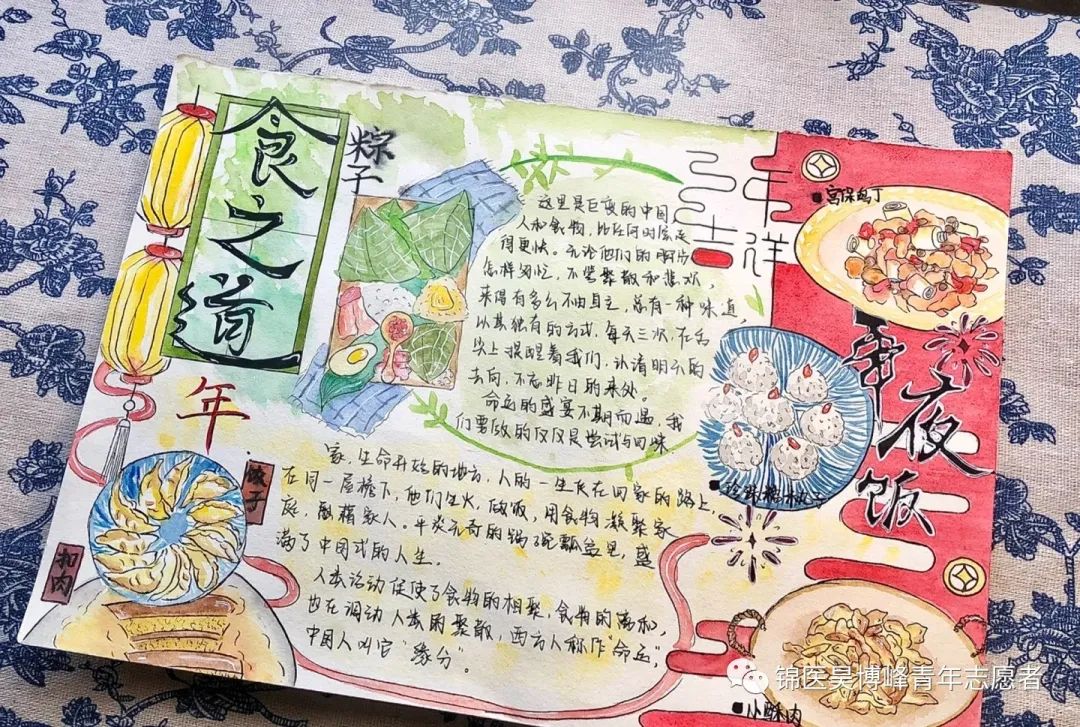 食之道
粽子
吉
年祥
宫保鸡丁
这里是巨变的中国
人和食物，比任何时候走
得更快。无论他们的脚步
怎样匆忙，不管聚散和悲欢，
来得有多么不由自主，总有一种味道，
以其独有的方式，每天三次，在舌
尖上提醒着我们，认清明天的
去向，不忘昨日的来处。
命运的盛宴不期而遇，我
们要做的仅仅是尝试与回味
年夜饭
年
珍珠糯米丸子
饺子
扣肉
家，生命开始的地方，人的一生走在回家的路上，
在同一屋檐下，他们生火，做饭，用食物凝聚家
庭，慰藉家人。平淡无奇的锅碗瓢盆里，盛
满了中国式的人生。
人类活动促使了食物的相聚，食物的离和，
也在调动人类的聚散，西方人称作“命运”，
中国人叫它“缘分”。
小酥肉
锦医昊博峰青年志愿者